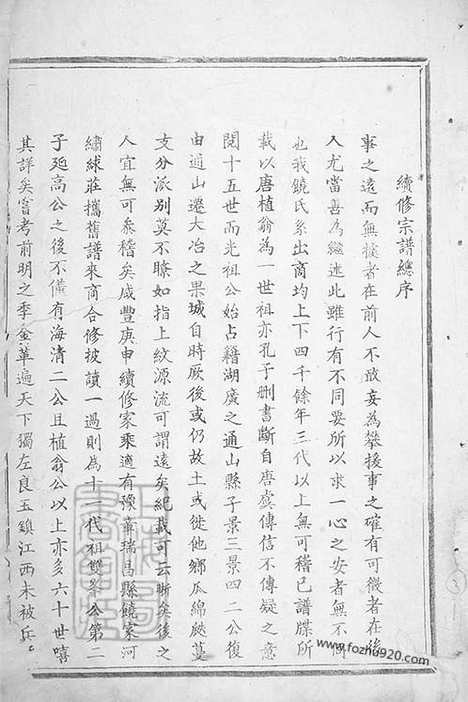 續修宗譜總序
事之遠而無據者在前人不敢妄為攀援事之確有可徵者在後
人尤當善為繼述此雖行有不同要所以求一心之安者無不同
也我饒氏系出商均上下四千餘年三代以上無可稽已譜牒所
載以唐植翁為一世祖亦孔子刪書斷自唐虞傳信不傳疑之意
閱十五世而光祖公始占籍湖廣之通山縣子景三景四二公復
由通山遷大冶之果城自時厥後或仍故土或徙他鄉瓜綿瓞蔓
支分派別莫不瞭如指上紋源流可謂遠矣紀載可云晰矣後之
人宜無可忝稽矣咸豐庚申續修家乘適有豫章瑞昌縣饒家河
繡球莊攜舊譜來商合修披讀一過則為十二代祖雙峯公第二
子延高公之後不僅有海清二公且植翁公以上亦多六十世嘻
其詳矣嘗考前明之季金革遍天下獨左良玉鎮江西未被兵
www.fozhu920.com